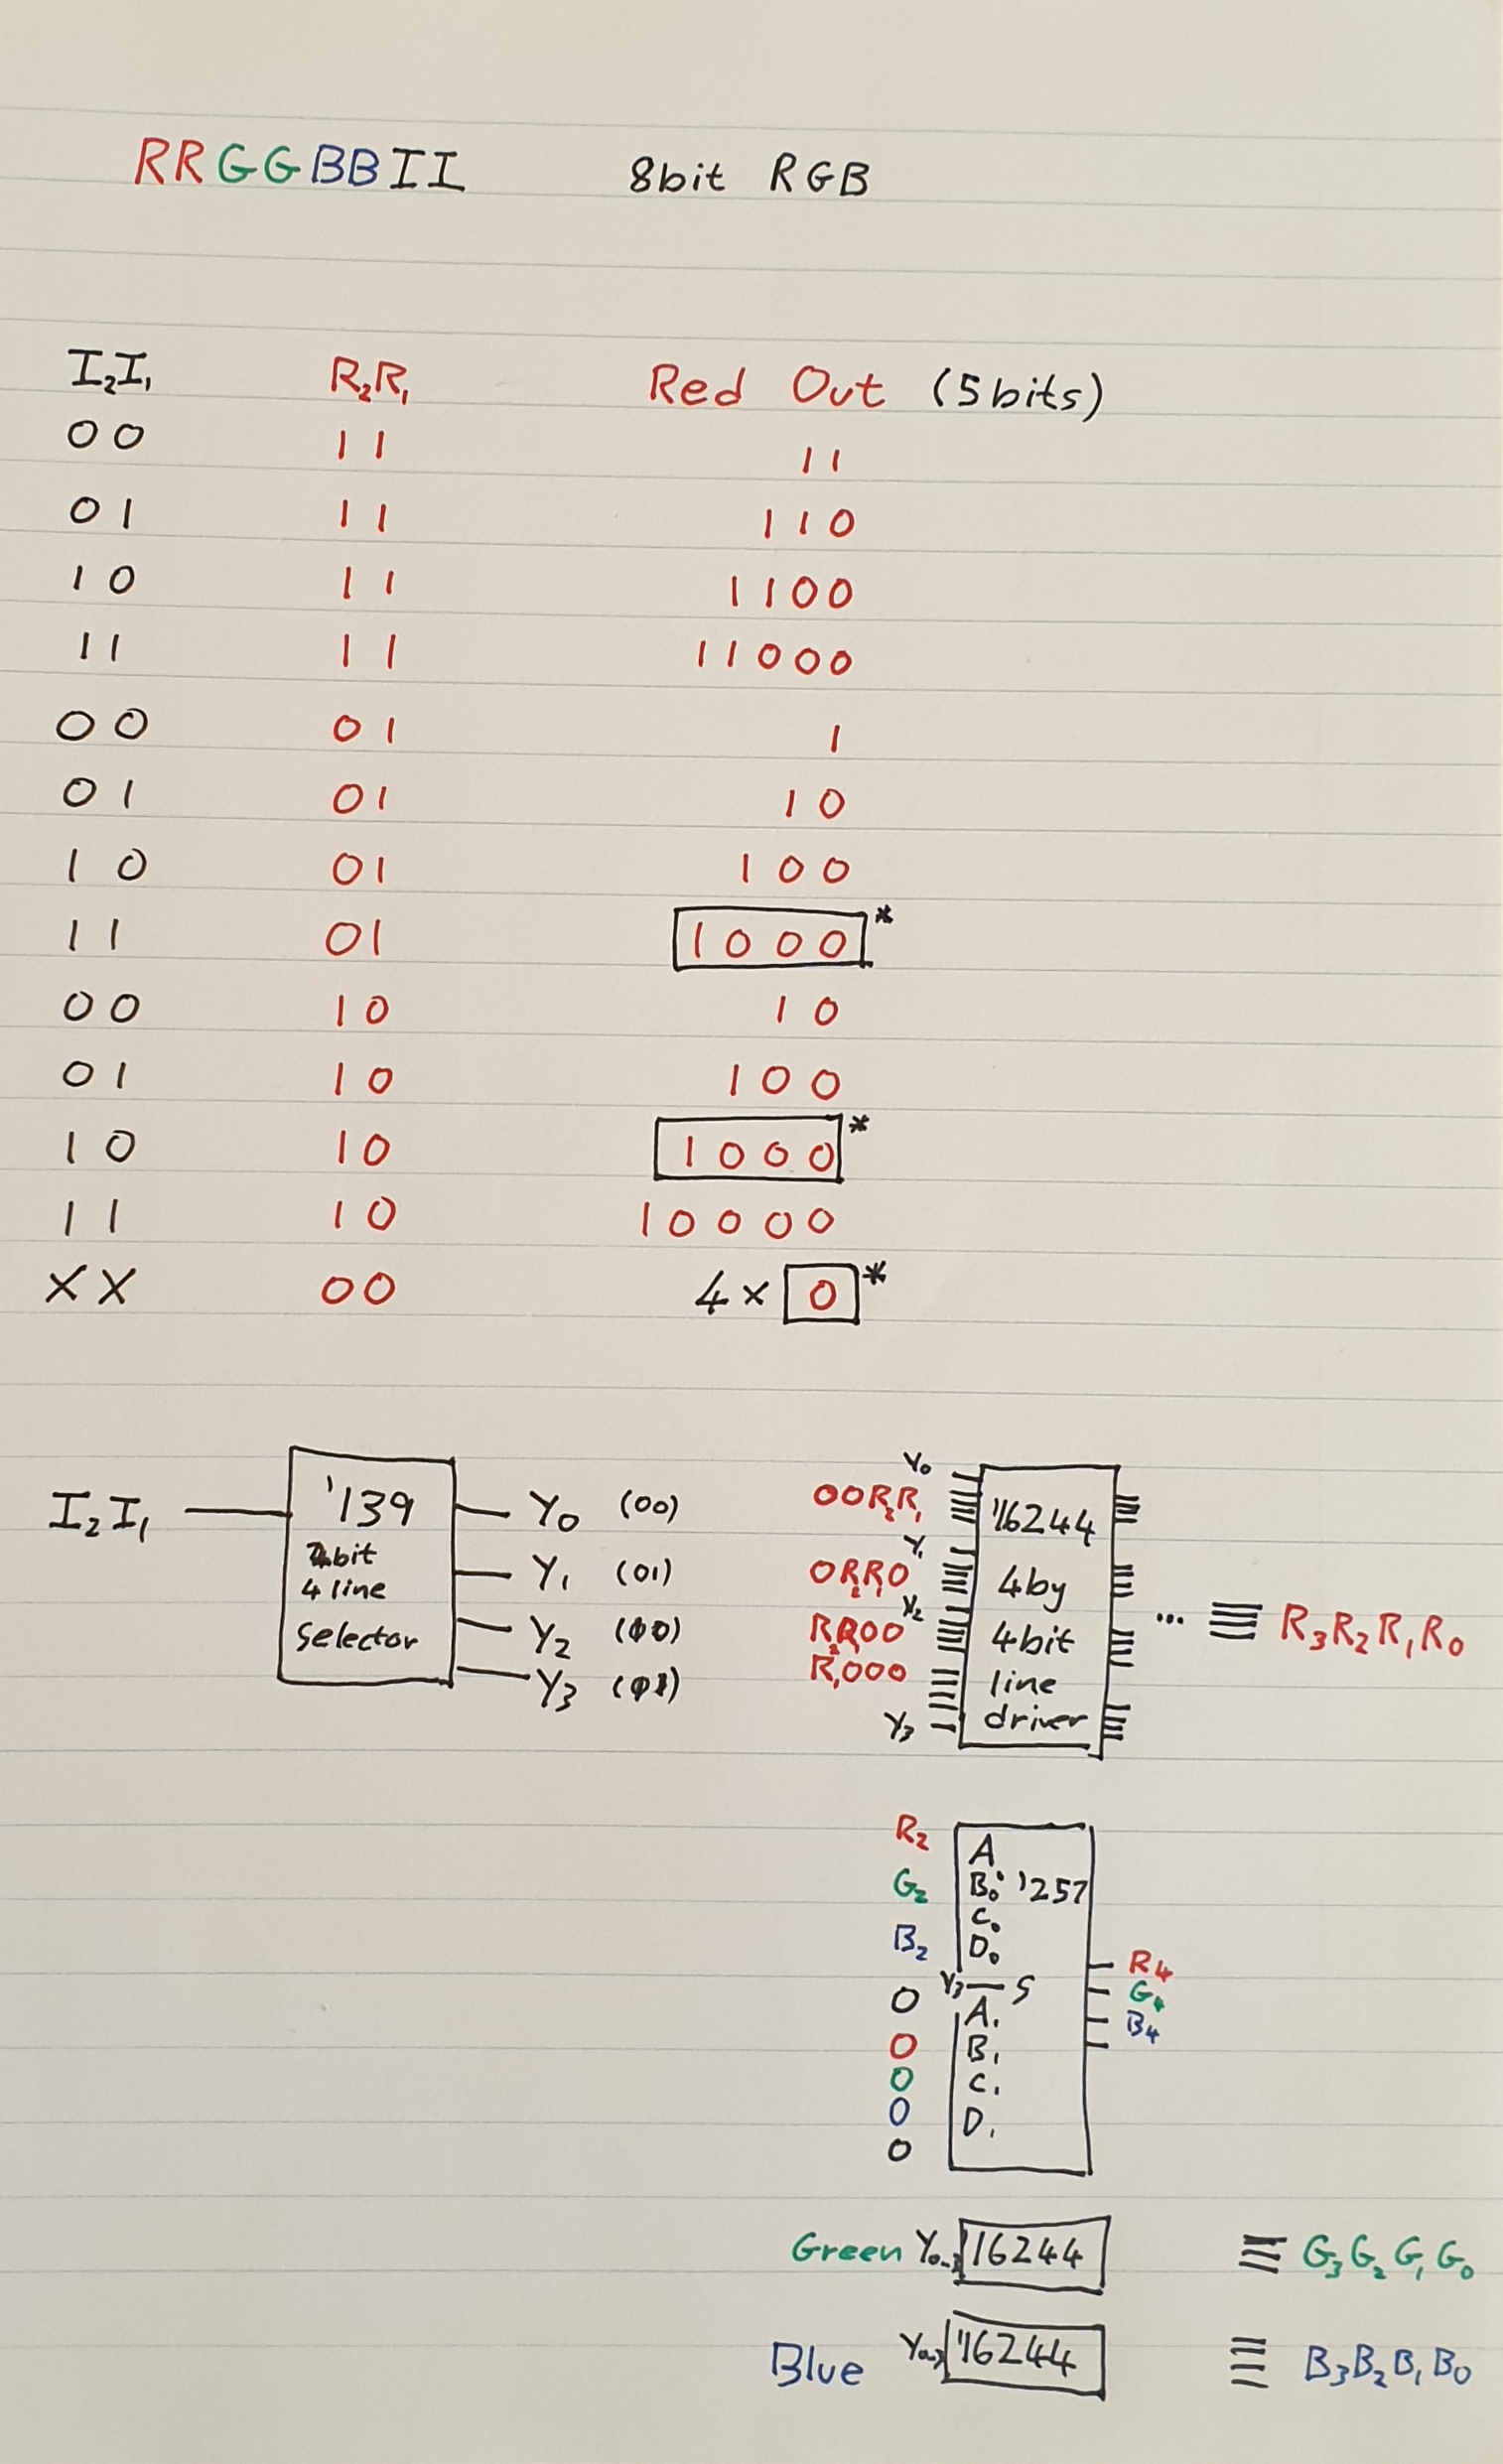 RRGGBBII 8bit RGB
I₂I₁ R₂R₁ Red Out (5bits)
00 11 11
01 11 110
10 11 1100
11 11 11000
00 01 1
01 01 10
10 01 100
11 01 1000*
00 10 10
01 10 100
10 10 1000*
11 10 10000
XX 00 4 × 0*
I₂I₁
'139
2bit
4 line
selector
Y₀ (00)
Y₁ (01)
Y₂ (10)
Y₃ (11)
Y₀
00R₂R₁
Y₁
0R₂R₁0
Y₂
R₂R₁00
R₁000
Y₃
'16244
4by
4bit
line
driver
... ≡ R₃R₂R₁R₀
R₂
G₂
B₂
0
0
0
0
0
A
B₀ '257
C₀
D₀
Y₃ S
A₁
B₁
C₁
D₁
R₄
G₄
B₄
Green Y₀..₃ '16244 G₃G₂G₁G₀
Blue Y₀..₃ '16244 B₃B₂B₁B₀